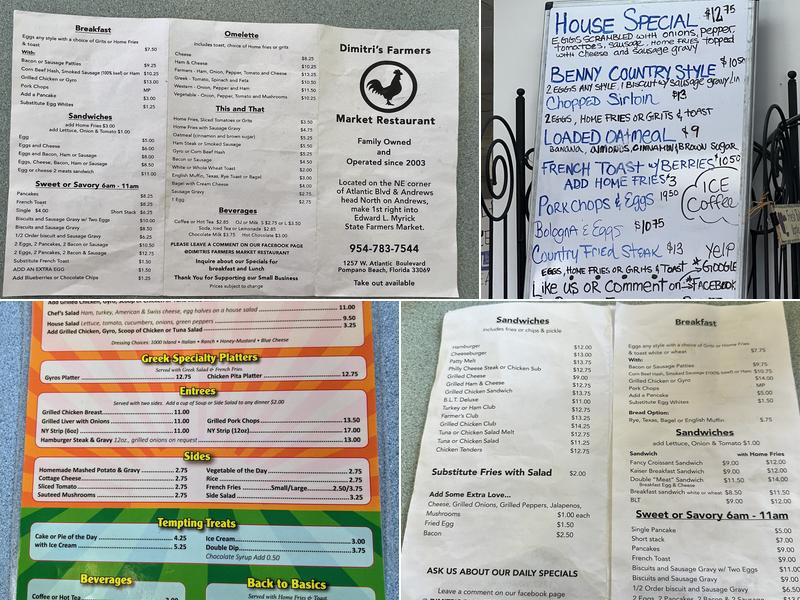 Breakfast
Eggs any style with a choice of Grits or Home Fries
& toast $7.50
With:
Bacon or Sausage Patties $9.25
Corn Beef Hash, Smoked Sausage (100% beef) or Ham $10.25
Grilled Chicken or Gyro $13.00
Pork Chops MP
Add a Pancake $3.00
Substitute Egg Whites $1.25
Sandwiches
add Home Fries $3.00
add Lettuce, Onion & Tomato $1.00
Egg $5.00
Eggs and Cheese $6.00
Eggs and Bacon, Ham or Sausage $8.00
Eggs, Cheese, Bacon, Ham or Sausage $8.50
Egg or cheese 2 meats sandwich $11.00
Sweet or Savory 6am - 11am
Pancakes $8.25
French Toast $8.25
Single $4.00 Short Stack $6.25
Biscuits and Sausage Gravy w/ Two Eggs $10.00
Biscuits and Sausage Gravy $8.50
1/2 Order biscuit and Sausage Gravy $6.25
2 Eggs, 2 Pancakes, 2 Bacon or Sausage
2 Eggs, 2 Pancakes
Substitute French Toast $1.50
ADD AN EXTRA EGG $1.50
Add Blueberries or Chocolate Chips $1.25
Omelette
Includes toast, choice of home fries or grits
Cheese $8.25
Ham & Cheese $10.25
Farmers - Ham, Onion, Pepper, Tomato and Cheese $13.25
Greek - Tomato, Spinach and Feta $10.50
Western - Onion, Pepper and Ham $11.50
Vegetable - Onion, Pepper, Tomato and Mushrooms $10.25
This and That
Home Fries, Sliced Tomatoes or Grits $3.50
Home Fries with Sausage Gravy $4.75
Oatmeal (cinnamon and brown sugar) $5.25
Ham Steak or Smoked Sausage $5.50
Gyro or Corn Beef Hash $5.25
Bacon or Sausage $4.50
White or Whole Wheat Toast $2.00
English Muffin, Texas, Rye Toast or Bagel $3.00
Bagel with Cream Cheese $4.00
Sausage Gravy $2.75
1 Egg $2.75
Beverages
Coffee or Hot Tea $2.85 OJ or Milk S $2.75 or L $3.50
Soda, Iced Tea or Lemonade $2.85
Chocolate Milk $3.75 Hot Chocolate $3.00
PLEASE LEAVE A COMMENT ON OUR FACEBOOK PAGE
@DIMITRIS FARMERS MARKET RESTAURANT
Inquire about our Specials for
breakfast and Lunch
Thank You for Supporting our Small Business
Prices subject to change
Dimitri's Farmers
Market Restaurant
Family Owned
and
Operated since 2003
Located on the NE corner
of Atlantic Blvd & Andrews
head North on Andrews,
make 1st right into
Edward L. Myrick
State Farmers Market.
954-783-7544
1257 W. Atlantic Boulevard
Pompano Beach, Florida 33069
Take out available
HOUSE SPECIAL $12.75
EGGS SCRAMBLED with onions, pepper,
tomatoes, sausage, Home FRIES topped
with Cheese and sausage gravy
BENNY COUNTRY STYLE $10.50
2 EGGS ANY STYLE, 1 BISCUIT w/ sausage gravy
Chopped Sirloin $13
2 EGGS, HOME FRIES OR GRITS & TOAST
LOADED OATMEAL $9
BANANA, ALMONDS, CINNAMON, BROWN SUGAR
FRENCH TOAST w/BERRIES $10.50
ADD HOME FRIES $3
ICE
COFFEE
Pork chops & Eggs 19.50
Bologna & Eggs $10.75
Country Fried Steak $13 Yelp
EGGS, HOME FRIES OR GRITS & TOAST GOOGLE
Like us or Comment on FACEBOOK
Add Grilled Chicken, Gyro, Scoop of Chicken or Tuna Salad
Chef's Salad Ham, turkey, American & Swiss cheese, egg halves on a house salad 11.00
House Salad Lettuce, tomato, cucumbers, onions, green peppers 9.50
Add Grilled Chicken, Gyro, Scoop of Chicken or Tuna Salad 3.25
Dressing Choices: 1000 Island • Italian • Ranch • Honey-Mustard • Blue Cheese
Greek Specialty Platters
Served with Greek Salad & French Fries
Gyros Platter 12.75 Chicken Pita Platter 12.75
Entrees
Served with two sides. Add a cup of Soup or Side Salad to any dinner $2.00
Grilled Chicken Breast 11.00
Grilled Liver with Onions 11.00 Grilled Pork Chops 13.50
NY Strip (6oz) 11.00 NY Strip (12oz) 17.00
Hamburger Steak & Gravy 12oz., grilled onions on request 13.00
Sides
Homemade Mashed Potato & Gravy 2.75 Vegetable of the Day 2.75
Cottage Cheese 2.75 Rice 2.75
Sliced Tomato 2.75 French Fries Small/Large 2.50/3.75
Sauteed Mushrooms 2.75 Side Salad 3.25
Tempting Treats
Cake or Pie of the Day 4.25 Ice Cream 3.00
with Ice Cream 5.25 Double Dip 3.75
Chocolate Syrup Add 0.50
Beverages
Coffee or Hot Tea 2.00
Back to Basics
Served with Home Fries & Toast
Sandwiches
Includes fries or chips & pickle
Hamburger $12.00
Cheeseburger $13.00
Patty Melt $13.75
Philly Cheese Steak or Chicken Sub $12.75
Grilled Cheese $9.00
Grilled Ham & Cheese $12.75
Grilled Chicken Sandwich $13.75
B.L.T. Deluxe $11.00
Turkey or Ham Club $12.75
Farmer's Club $13.25
Grilled Chicken Club $14.25
Tuna or Chicken Salad Melt $12.75
Tuna or Chicken Salad $11.25
Chicken Tenders $12.75
Substitute Fries with Salad $2.00
Add Some Extra Love...
Cheese, Grilled Onions, Grilled Peppers, Jalapenos,
Mushrooms $1.00 each
Fried Egg $1.50
Bacon $2.50
ASK US ABOUT OUR DAILY SPECIALS
Leave a comment on our facebook page
Breakfast
Eggs any style with a choice of Grits or Home Fries
& toast white or wheat $7.75
With:
Bacon or Sausage Patties $9.75
Corn Beef Hash, Smoked Sausage (100% beef) or Ham $10.75
Grilled Chicken or Gyro $14.00
Pork Chops MP
Add a Pancake $5.00
Substitute Egg Whites $1.50
Bread Option:
Rye, Texas, Bagel or English Muffin $.75
Sandwiches
add Lettuce, Onion & Tomato $1.00
Sandwich with Home Fries
Fancy Croissant Sandwich $9.00 $12.00
Kaiser Breakfast Sandwich $9.00 $12.00
Double "Meat" Sandwich $11.50 $14.00
Breakfast Egg & Cheese
Breakfast sandwich white or wheat $8.50 $11.50
BLT $9.00 $12.00
Sweet or Savory 6am - 11am
Single Pancake $5.00
Short stack $7.00
Pancakes $9.00
French Toast $9.00
Biscuits and Sausage Gravy w/ Two Eggs $11.00
Biscuits and Sausage Gravy $9.00
1/2 Order biscuit and Sausage Gravy $6.50
2 Eggs, 2 Pancakes, 2 Bacon & 2 Sausage